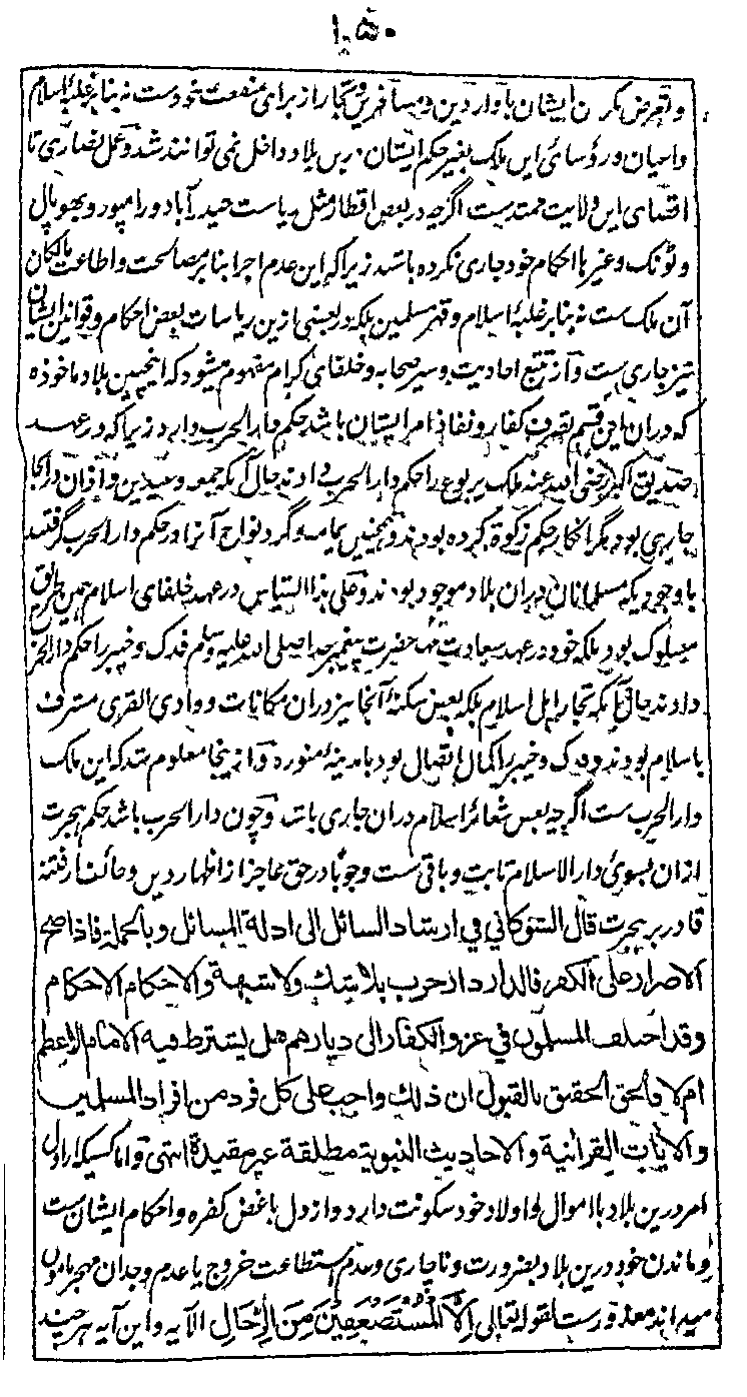 ۱۵۰
و تعرض نکردن ایشان با واردین و مسافرین و تجار از برای منفعت خودست نه بنا بر غلبهٔ اسلام
واعیان و رؤسای این ملک بغیر حکم ایشان درین بلاد داخل نمی توانند شد و عمل نصاری تا
اقصای این ولایت ممتدست اگرچه در بعض اقطار مثل ریاست حیدرآباد و رامپور و بھوپال
و ٹونک و غیرہا احکام خود جاری نکرده باشند زیرا که این عدم اجرا بنا بر مصالحت و اطاعت مالکان
آن ملک ست نه بنا بر غلبهٔ اسلام و قهر مسلمین بلکه در بعضی ازین ریاسات بعض احکام و قوانین ایشان
نیز جاری ست و از تتبع احادیث و سیر صحابه و خلفای کرام مفهوم میشود که اینچنین بلاد ماخوذه
که دران این قسم تصرف کفار و نفاذ امر ایشان باشد حکم دار الحرب دارد زیرا که در عهد
صدیق اکبر رضی الله عنه ملک یربوع را حکم دار الحرب دادند حال آنکه جمعه و عیدین و اذان در انجا
جاری بود مگر انکار حکم زکوة کرده بودند و همچنین یمامه و گرد نواح آنرا در حکم دار الحرب گرفتند
با وجودیکه مسلمانان دران بلاد موجود بودند و علی هذا القیاس در عهد خلفای اسلام همین طریق
مسلوک بود بلکه خود در عهد سعادت مهد حضرت پیغمبر خدا صلی الله علیه وسلم فدک و خیبر را حکم دار الحرب
دادند حال آنکه تجار اهل اسلام بلکه بعض سکنهٔ آنجا نیز دران مکانات و وادی القری مشرف
باسلام بودند و فدک و خیبر را کمال اتصال بود با مدینهٔ منوره و ازینجا معلوم شد که این ملک
دار الحرب ست اگرچه بعض شعائر اسلام دران جاری باشد و چون دار الحرب باشد حکم هجرت
ازان بسوی دار الاسلام ثابت و باقی ست وجوبا در حق عاجز از اظهار دین و خائف از فتنه
قادر بر هجرت قال الشوکانی فی ارشاد السائل الی ادلة المسائل وبالجملة فاذا صح
الاصرار علی الکفر فالدار دار حرب بلا شک ولا شبهة والاحکام الاحکام
وقد اختلف المسلمون فی غزو الکفار الی دیارهم هل یشترط فیه الامام الاعظم
ام لا والحق الحقیق بالقبول ان ذلک واجب علی کل فرد من افراد المسلمین
والایات القرانیة والاحادیث النبویة مطلقة غیر مقیدة انتهی و اما کسیکه از اول
امر درین بلاد با اموال و اولاد خود سکونت دارد و از دل باغض کفره و احکام ایشان ست
و ماندن خود درین بلاد بضرورت و ناچاری و عدم استطاعت خروج یا عدم وجدان مهجر مامون
میداند معذورست لقوله تعالی اِلَّا الْمُسْتَضْعَفِیْنَ مِنَ الرِّجَالِ الآیه و این آیه هر چند